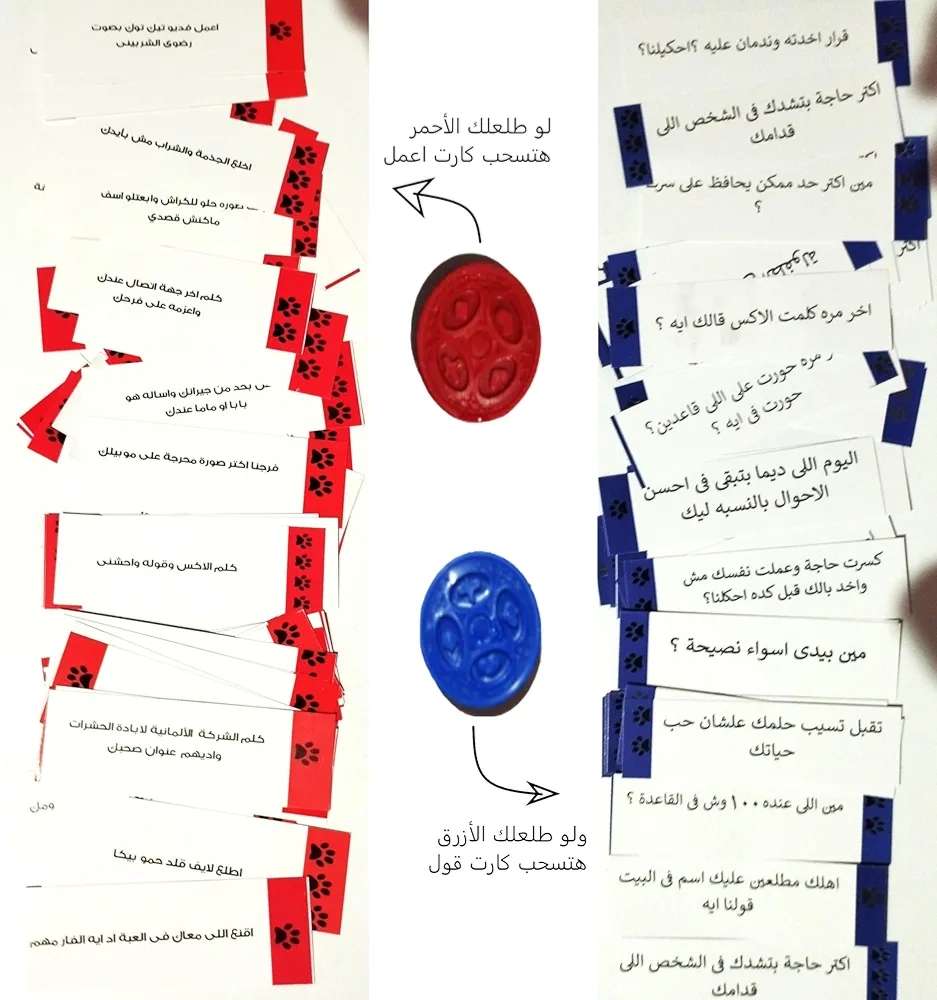 اعمل فديو تيك توك بصوت
رضوى الشربينى
اخلع الجذمة والشراب مش بأيدك
صوره حلو للكراش وابعتلو اسف
ماكنش قصدي
كلم اخر جهة اتصال عندك
واعزمه على فرحك
بحد من جيرانك واساله هو
بابا او ماما عندك
فرجنا اكتر صورة محرجة على موبيلك
كلم الاكس وقوله واحشنى
كلم الشركة الألمانية لابادة الحشرات
واديهم عنوان صحبك
ومن
اطلع لايف قلد حمو بيكا
اقنع اللى معاك فى العبة اد ايه الفار مهم
لو طلعلك الأحمر
هتسحب كارت اعمل
ولو طلعلك الأزرق
هتسحب كارت قول
قرار اخدته وندمان عليه ؟احكيلنا؟
اكتر حاجة بتشدك فى الشخص اللى
قدامك
مين اكتر حد ممكن يحافظ على سرك
؟
اكتر
الطفولة
اخر مره كلمت الاكس قالك ايه ؟
مره حورت على اللى قاعدين؟
حورت فى ايه ؟
اليوم اللى ديما بتبقى فى احسن
الاحوال بالنسبه ليك
كسرت حاجة وعملت نفسك مش
واخد بالك قبل كده احكلنا؟
مين بيدى اسواء نصيحة ؟
تقبل تسيب حلمك علشان حب
حياتك
مين اللى عنده ١٠٠ وش فى القاعدة ؟
اهلك مطلعين عليك اسم فى البيت
قولنا ايه
اكتر حاجة بتشدك فى الشخص اللى
قدامك